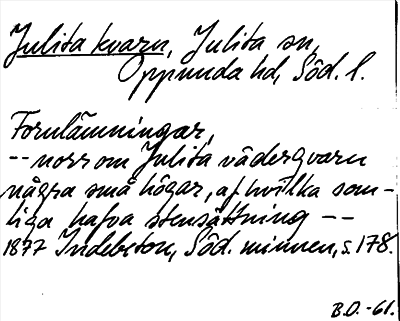 Julita kvarn, Julita sn,
Oppunda hd, Söd. l.
Fornlämningar,
-- norr om Julita vädergvarn
några små högar, af hvilka som-
liga hafva stensättning --
1877 Indebetou, Söd. minnen, s. 178.
B.O. -61.